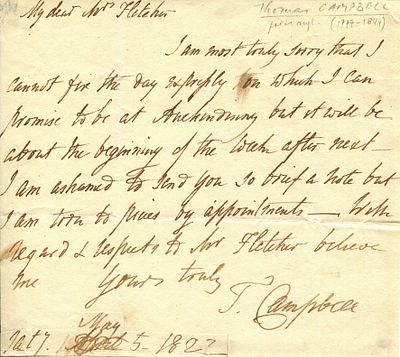 My dear Mrs Fletcher
Thomas CAMPBELL
(1777-1844)
I am most truly sorry that I
cannot fix the day expressly on which I can
promise to be at Auchindinny but it will be
about the beginning of the Week after next -
I am ashamed to send you so brief a note but
I am torn to pieces by appointments — With
regard & respects to Mr Fletcher believe
me Yours truly
T. Campbell
May
5 - 182